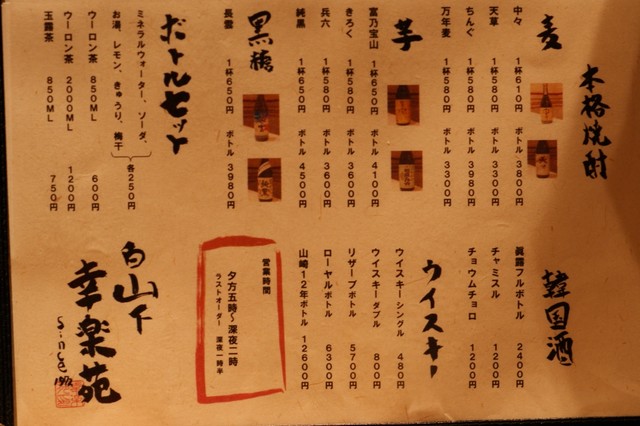 本格焼酎
麦
中々 1杯610円 ボトル 3800円
天草 1杯580円 ボトル 3300円
ちんぐ 1杯580円 ボトル 3980円
万年麦 1杯580円 ボトル 3300円
芋
富乃宝山 1杯650円 ボトル 4100円
きろく 1杯580円 ボトル 3600円
兵六 1杯580円 ボトル 3600円
純黒 1杯650円 ボトル 4500円
黒糖
長雲 1杯650円 ボトル 3980円
ボトルセット
ミネラルウォーター、ソーダ、
お湯、レモン、きゅうり、梅干
各250円
ウーロン茶 850ML 600円
ウーロン茶 2000ML 1200円
玉露茶 850ML 750円
韓国酒
眞露フルボトル 2400円
チャミスル 1200円
チョウムチョロ 1200円
ウイスキー
ウイスキーシングル 480円
ウイスキーダブル 800円
リザーブボトル 5700円
ローヤルボトル 6300円
山崎12年ボトル 12600円
営業時間
夕方五時～深夜二時
ラストオーダー 深夜一時半
白山下
幸楽苑
Since 1972